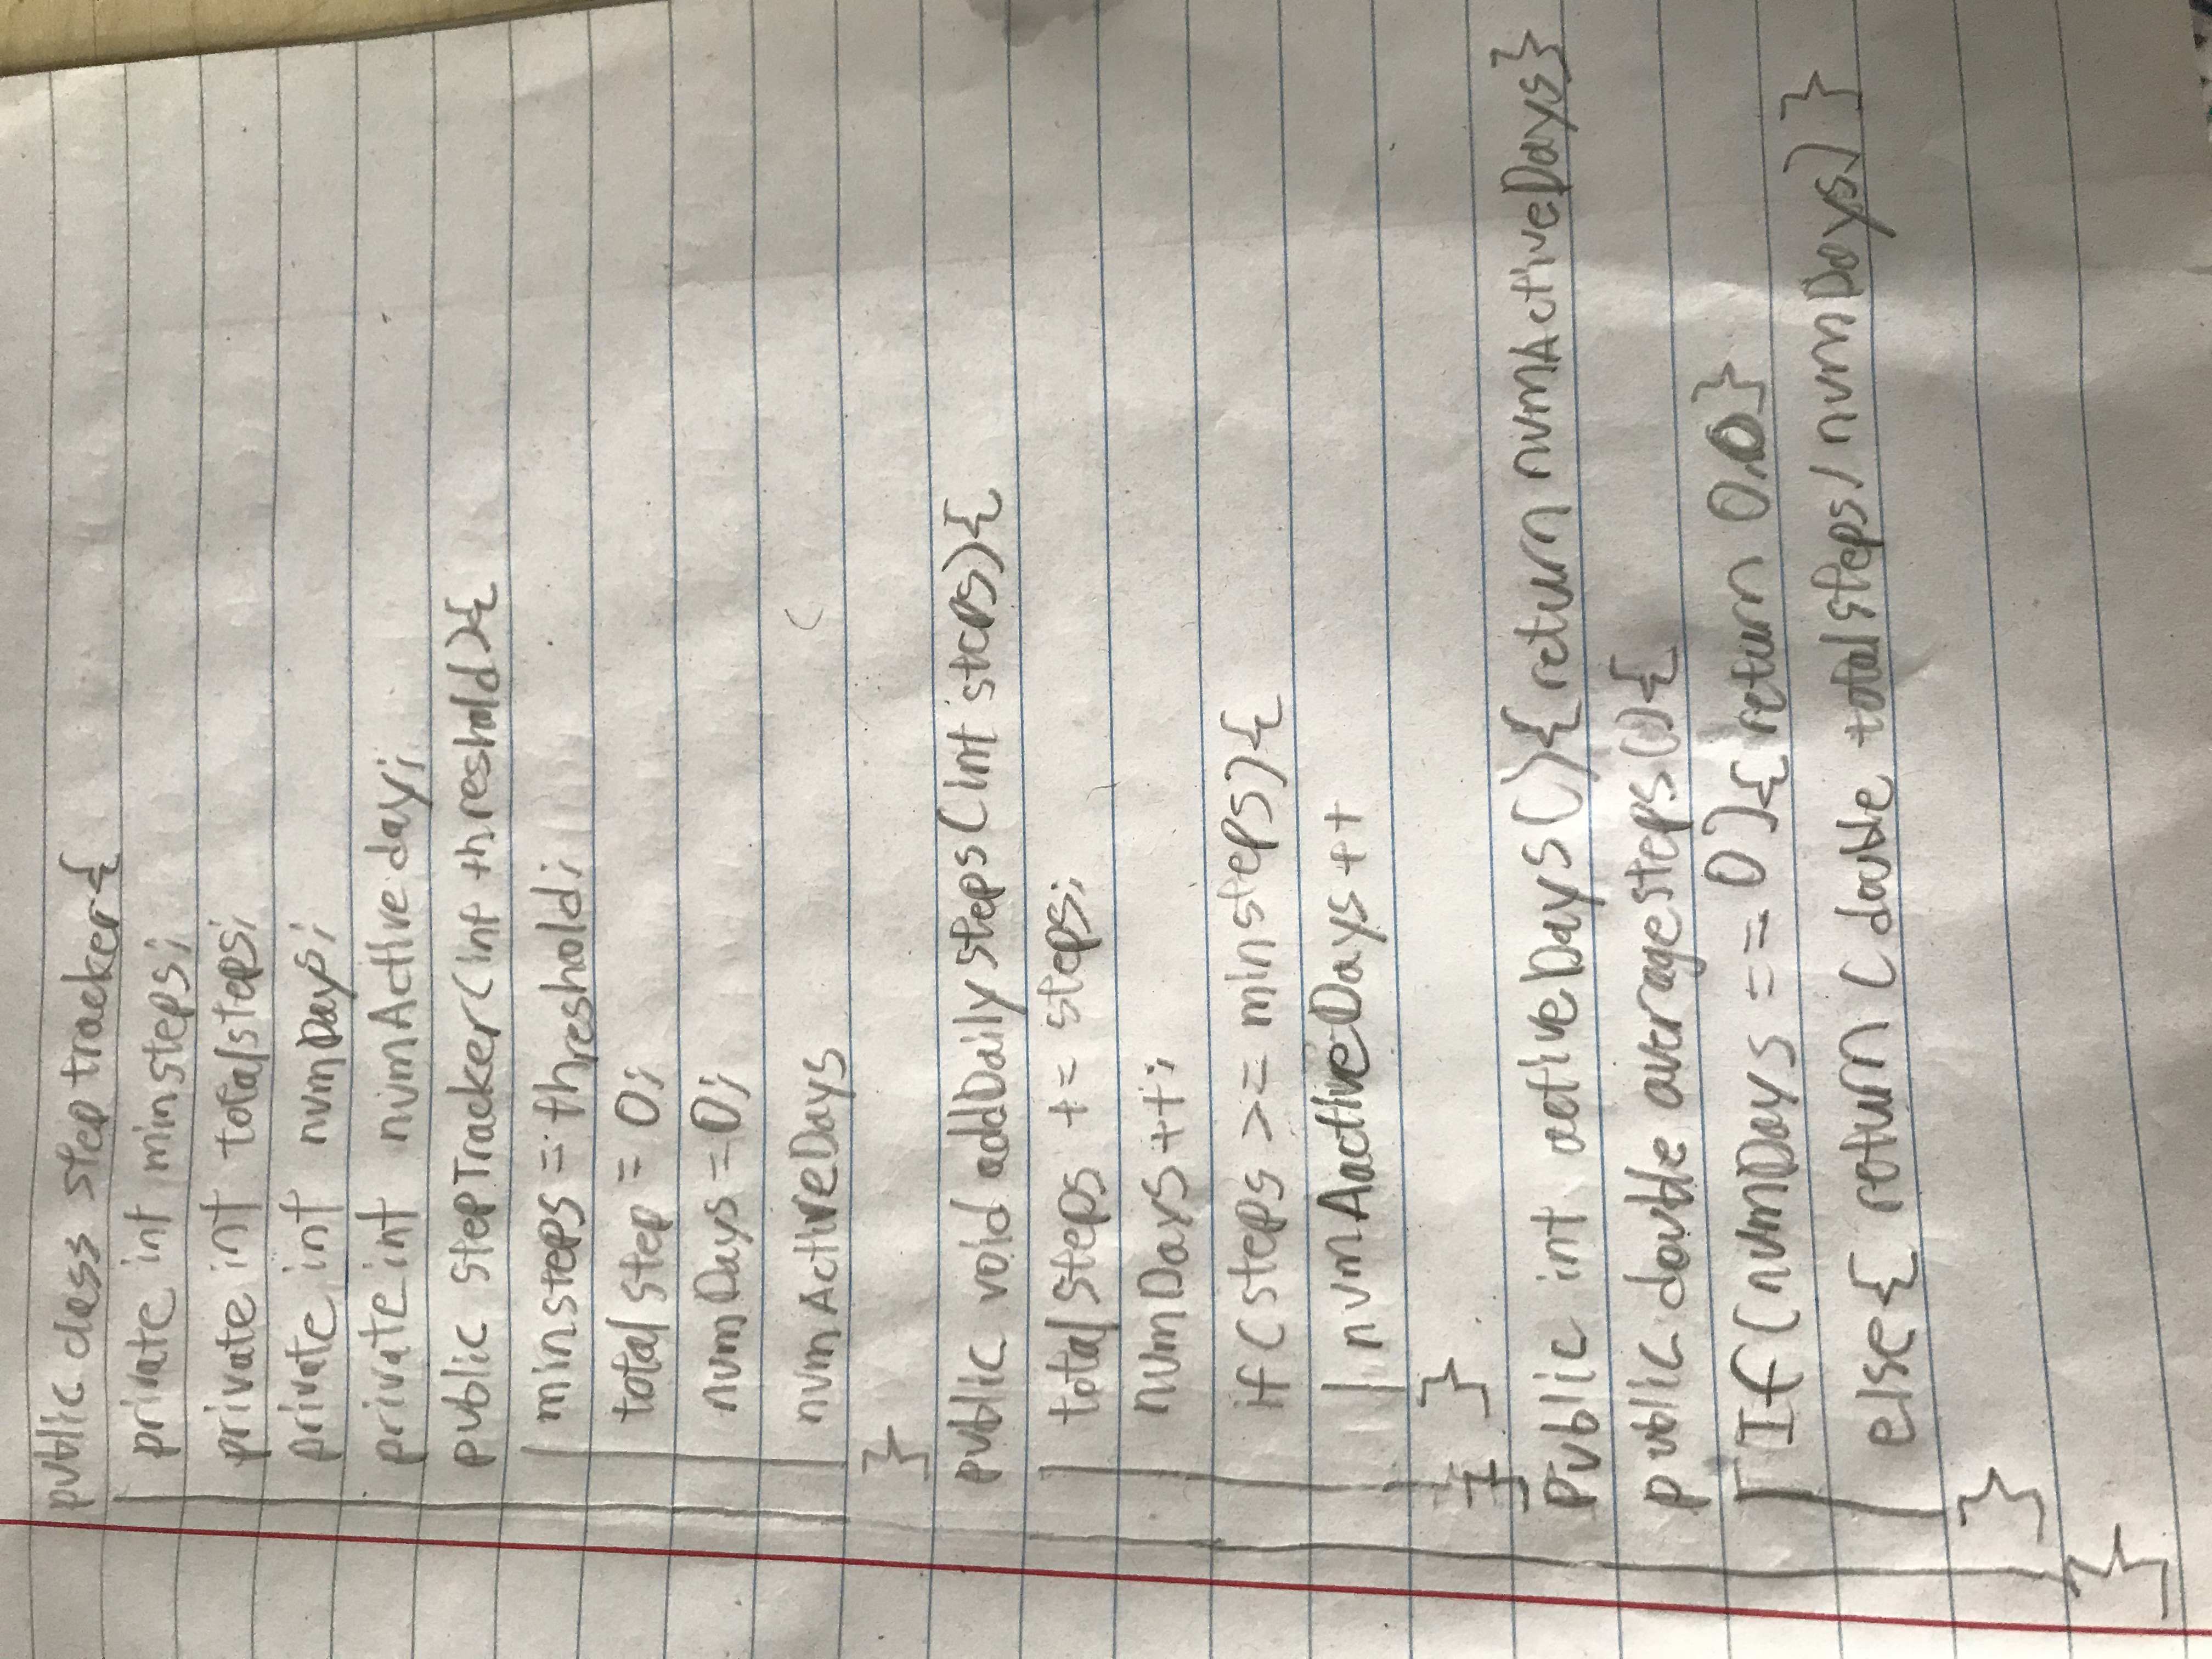 public class steptracker{
private int minsteps;
private int totalsteps;
private int numDays;
private int numActiveday;
public StepTracker(int threshold){
minsteps = threshold;
totalstep = 0;
numDays = 0;
numActiveDays
}
public void addDailysteps(int steps){
totalsteps += steps;
numDays++;
if(steps >= minsteps){
numAactiveDays++
}
}
Public int activeDays(){return numActiveDays}
public double averagesteps(){
If(numDays == 0){return 0.0}
else{ return (double totalsteps/numDays) }
}
}